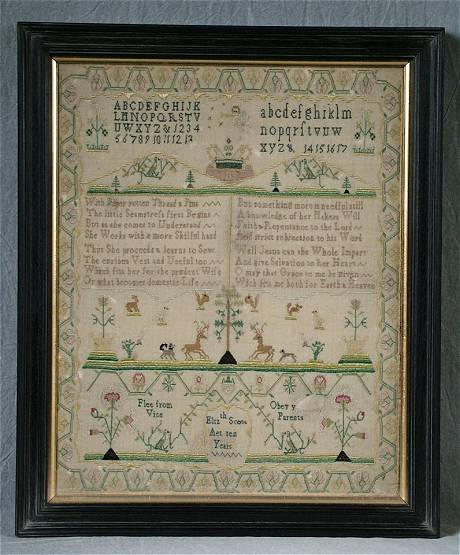 ABCDEFGHIJK
LMNOPQRSTV
UWXYZ & 1234
5 6 7 8 9 10 11 12 13
abcdefghiklm
nopqrſtvuw
xyz & 14 15 16 17
With rotten Thread & Pins
The little Seamstreſs first Begins
But as she comes to Understand
She Works with a more Skilful hand
Thus She proceeds & learns to Sew
The curious Vest and Useful too
Which fits her for the prudent Wife
Or what becomes domestic Life
But something more is needful still
A knowledge of her Makers Will
Faith & Repentance to the Lord
And strict subjection to his Word
Well Jesus can the Whole Impart
And give Salvation to her Heart
O may that Grace to me be Given
Which fits me both for Earth & Heaven
Flee from
Vice
Obey y
Parents
Elizth Scott
Aet ten
Years